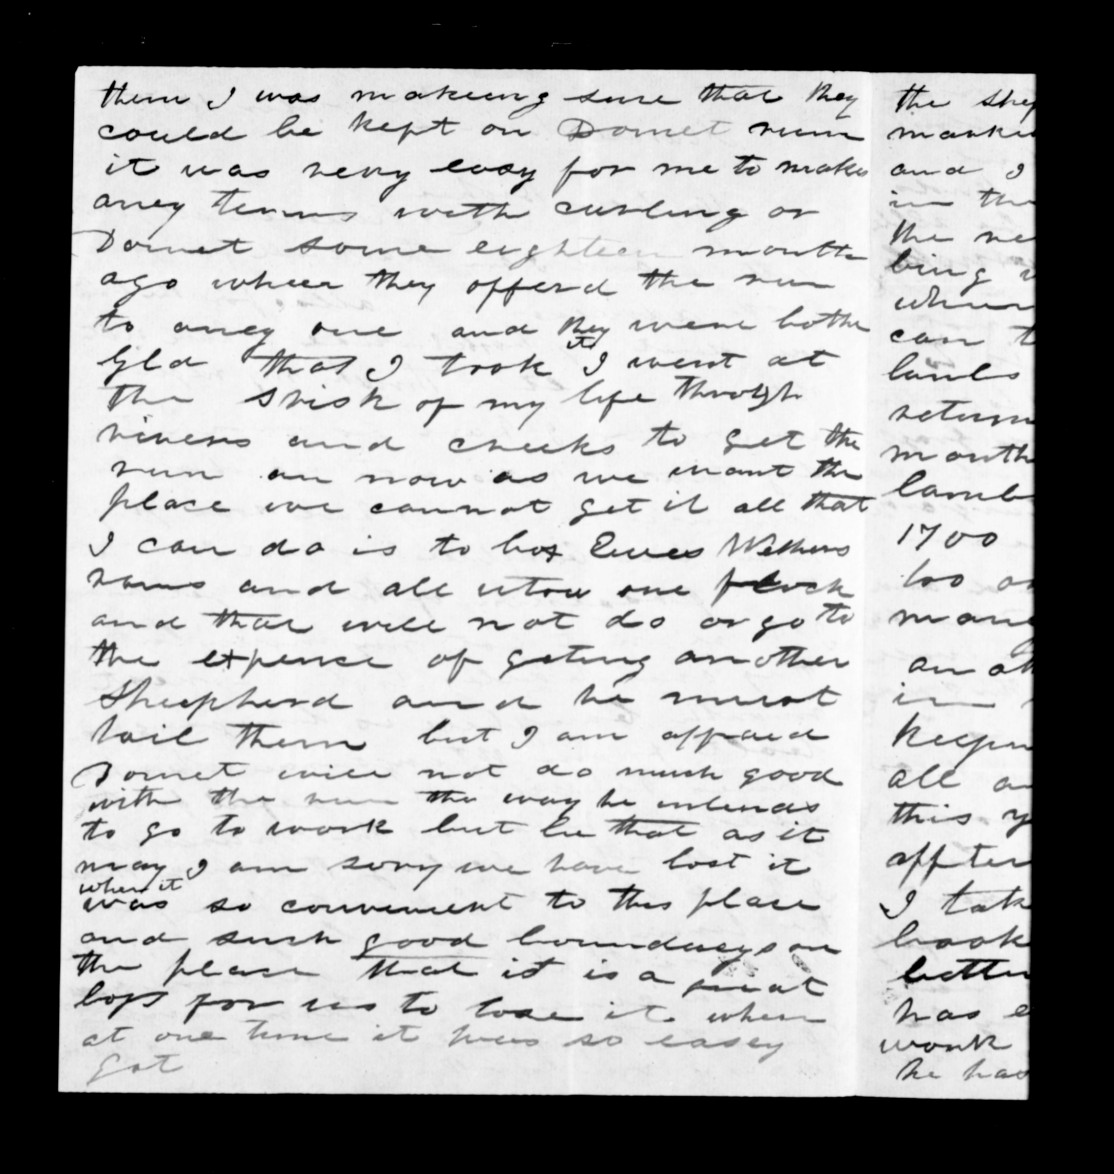 them I was makeing sure that they
could be kept on Domet runn
it was very easy for me to make
aney terms with curling or
Domet some eighteen month
ago wheer they offerd the run
to aney one and they were bothe
Gld that I took it I went at
the Srisk of my life throgh
rivers and creeks to get the
run an now as we want the
place we cannot get it all that
I can do is to Ewes Wethers
rams and all one flock
and that will not do or go to
the expence of geting another
Sheepherd and he must
tail them but I am affraed
Domet will not do much good
with the run the way he intends
to go to work but be that as it
may I am sorry we have lost it
when it
was so convenient to this place
and such good boundareys on
the place that it is a great
loss for us to lose it when
at one time it was so easey
got
the shep
marki
and I
in the
the ne
bing
when
can t
lambs
return
month
lamb
1700
too or
many
an ot
in
keepin
all an
this y
affter
I tak
book
better
has e
work
he has